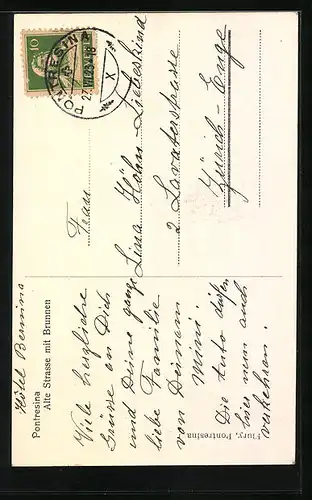 Hôtel Bernina
Pontresina
Alte Strasse mit Brunnen
Viele herzliche
Grüsse an Dich
und Deine ganze
liebe Familie
von Deinem
Mimi.
Die Auto dürfen
hier nun auch
verkehren.
Flury, Pontresina
10
PONTRESINA
X
Frau
Lina Höhn-Liebeskind
2 Lavaterstrasse
Zürich-Enge